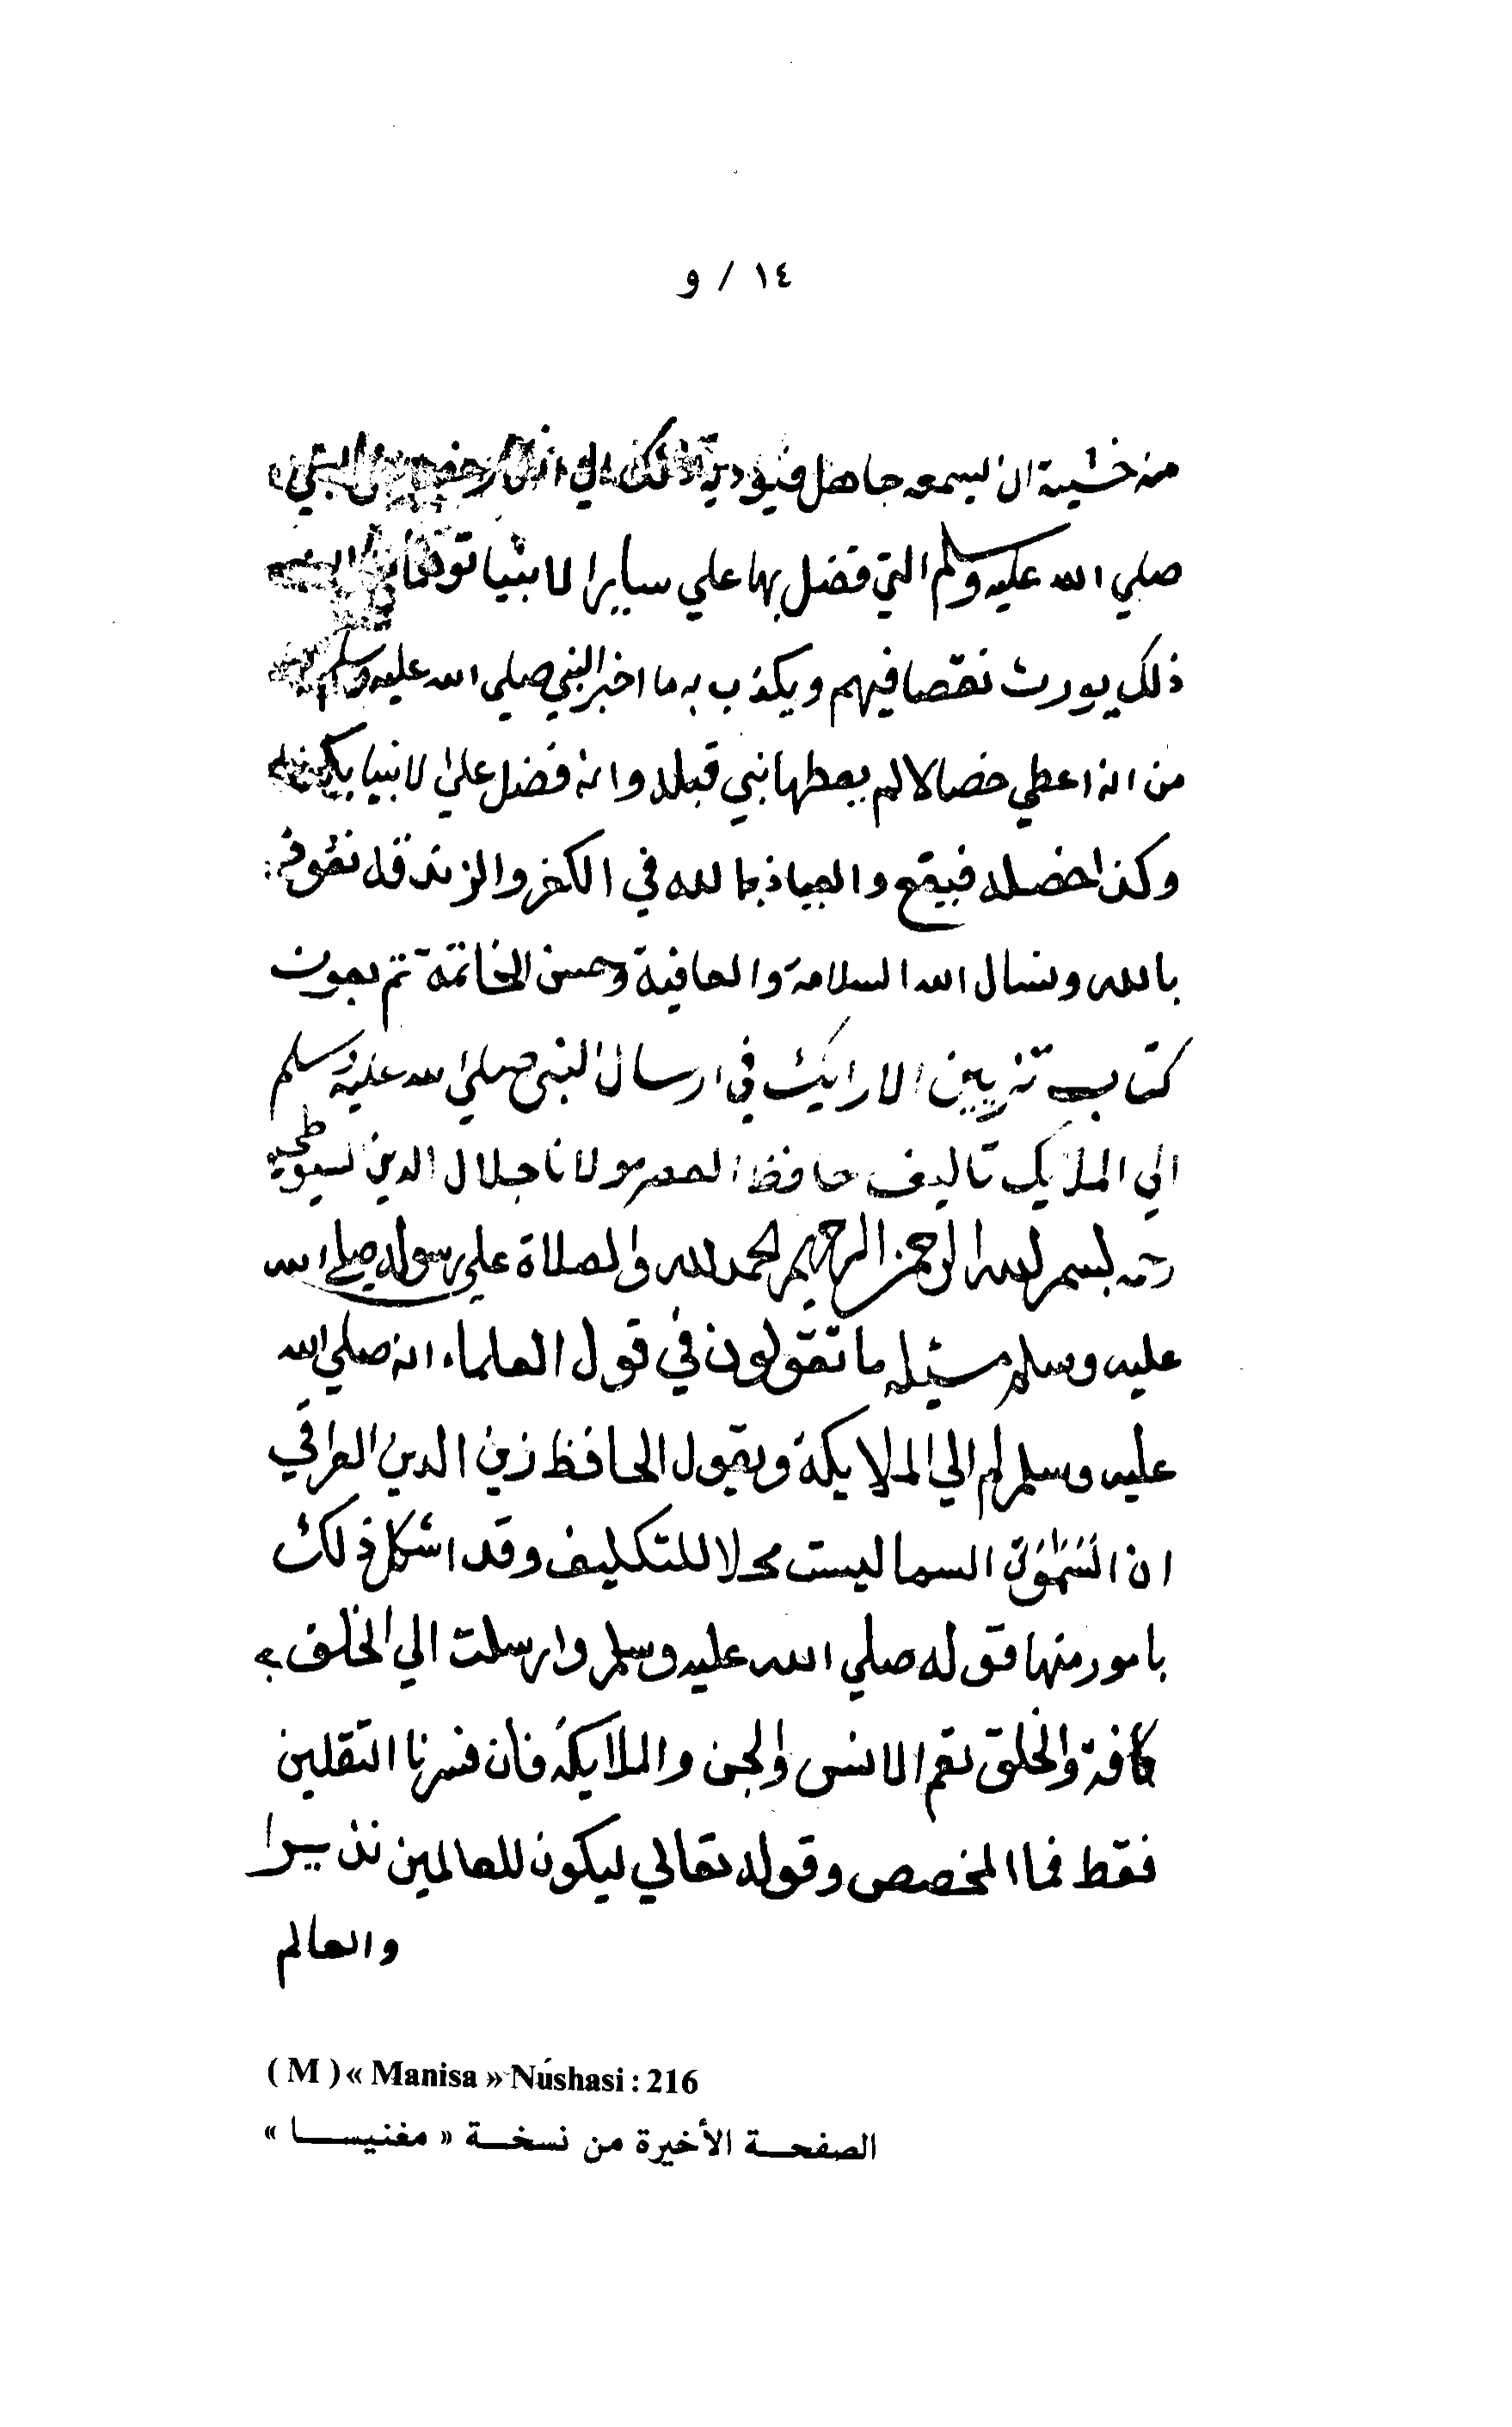 ١٤ / و
منه خشية ان يسمعه جاهل فيؤديه ذلك الي انكار خصايص النبي
صلي الله عليه وسلم التي فضل بها علي ساير الانبيا توهما
ذلك يورث نقصا فيهم ويكذب به ما اخبر النبي صلي الله عليه وسلم
من انه اعطي خصالا لم يعطها نبي قبله وانه فضل علي الانبيا بكذا
وكذا خصله فيقع والعياذ بالله في الكفر والزندقه نعوذ
بالله ونسال الله السلامة والعافية وحسن الخاتمة تم بعون
كتاب تزيين الارايك في ارسال النبي صلي الله عليه وسلم
الي الملايك تاليف حافظ العصر مولانا جلال الدين السيوطي
بسم الله الرحمن الرحيم الحمد لله والصلاة علي رسوله صلي الله
عليه وسلم مسئله ما تقولون في قول العلماء انه صلي الله
عليه وسلم لم الي الملايكة وبقول الحافظ زين الدين العراقي
ان السما ليست محلا للتكليف وقد اشكل ذلك
بامور منها قوله صلي الله عليه وسلم وارسلت الي الخلق
كافة والخلق تعم الانس والجن والملايكة فان فسرنا الثقلين
فقط فما المخصص وقوله تعالي ليكون للعالمين نذيرا
والعالم
( M ) « Manisa » Nüshasi : 216
الصفحة الأخيرة من نسخة « مغنيسا »